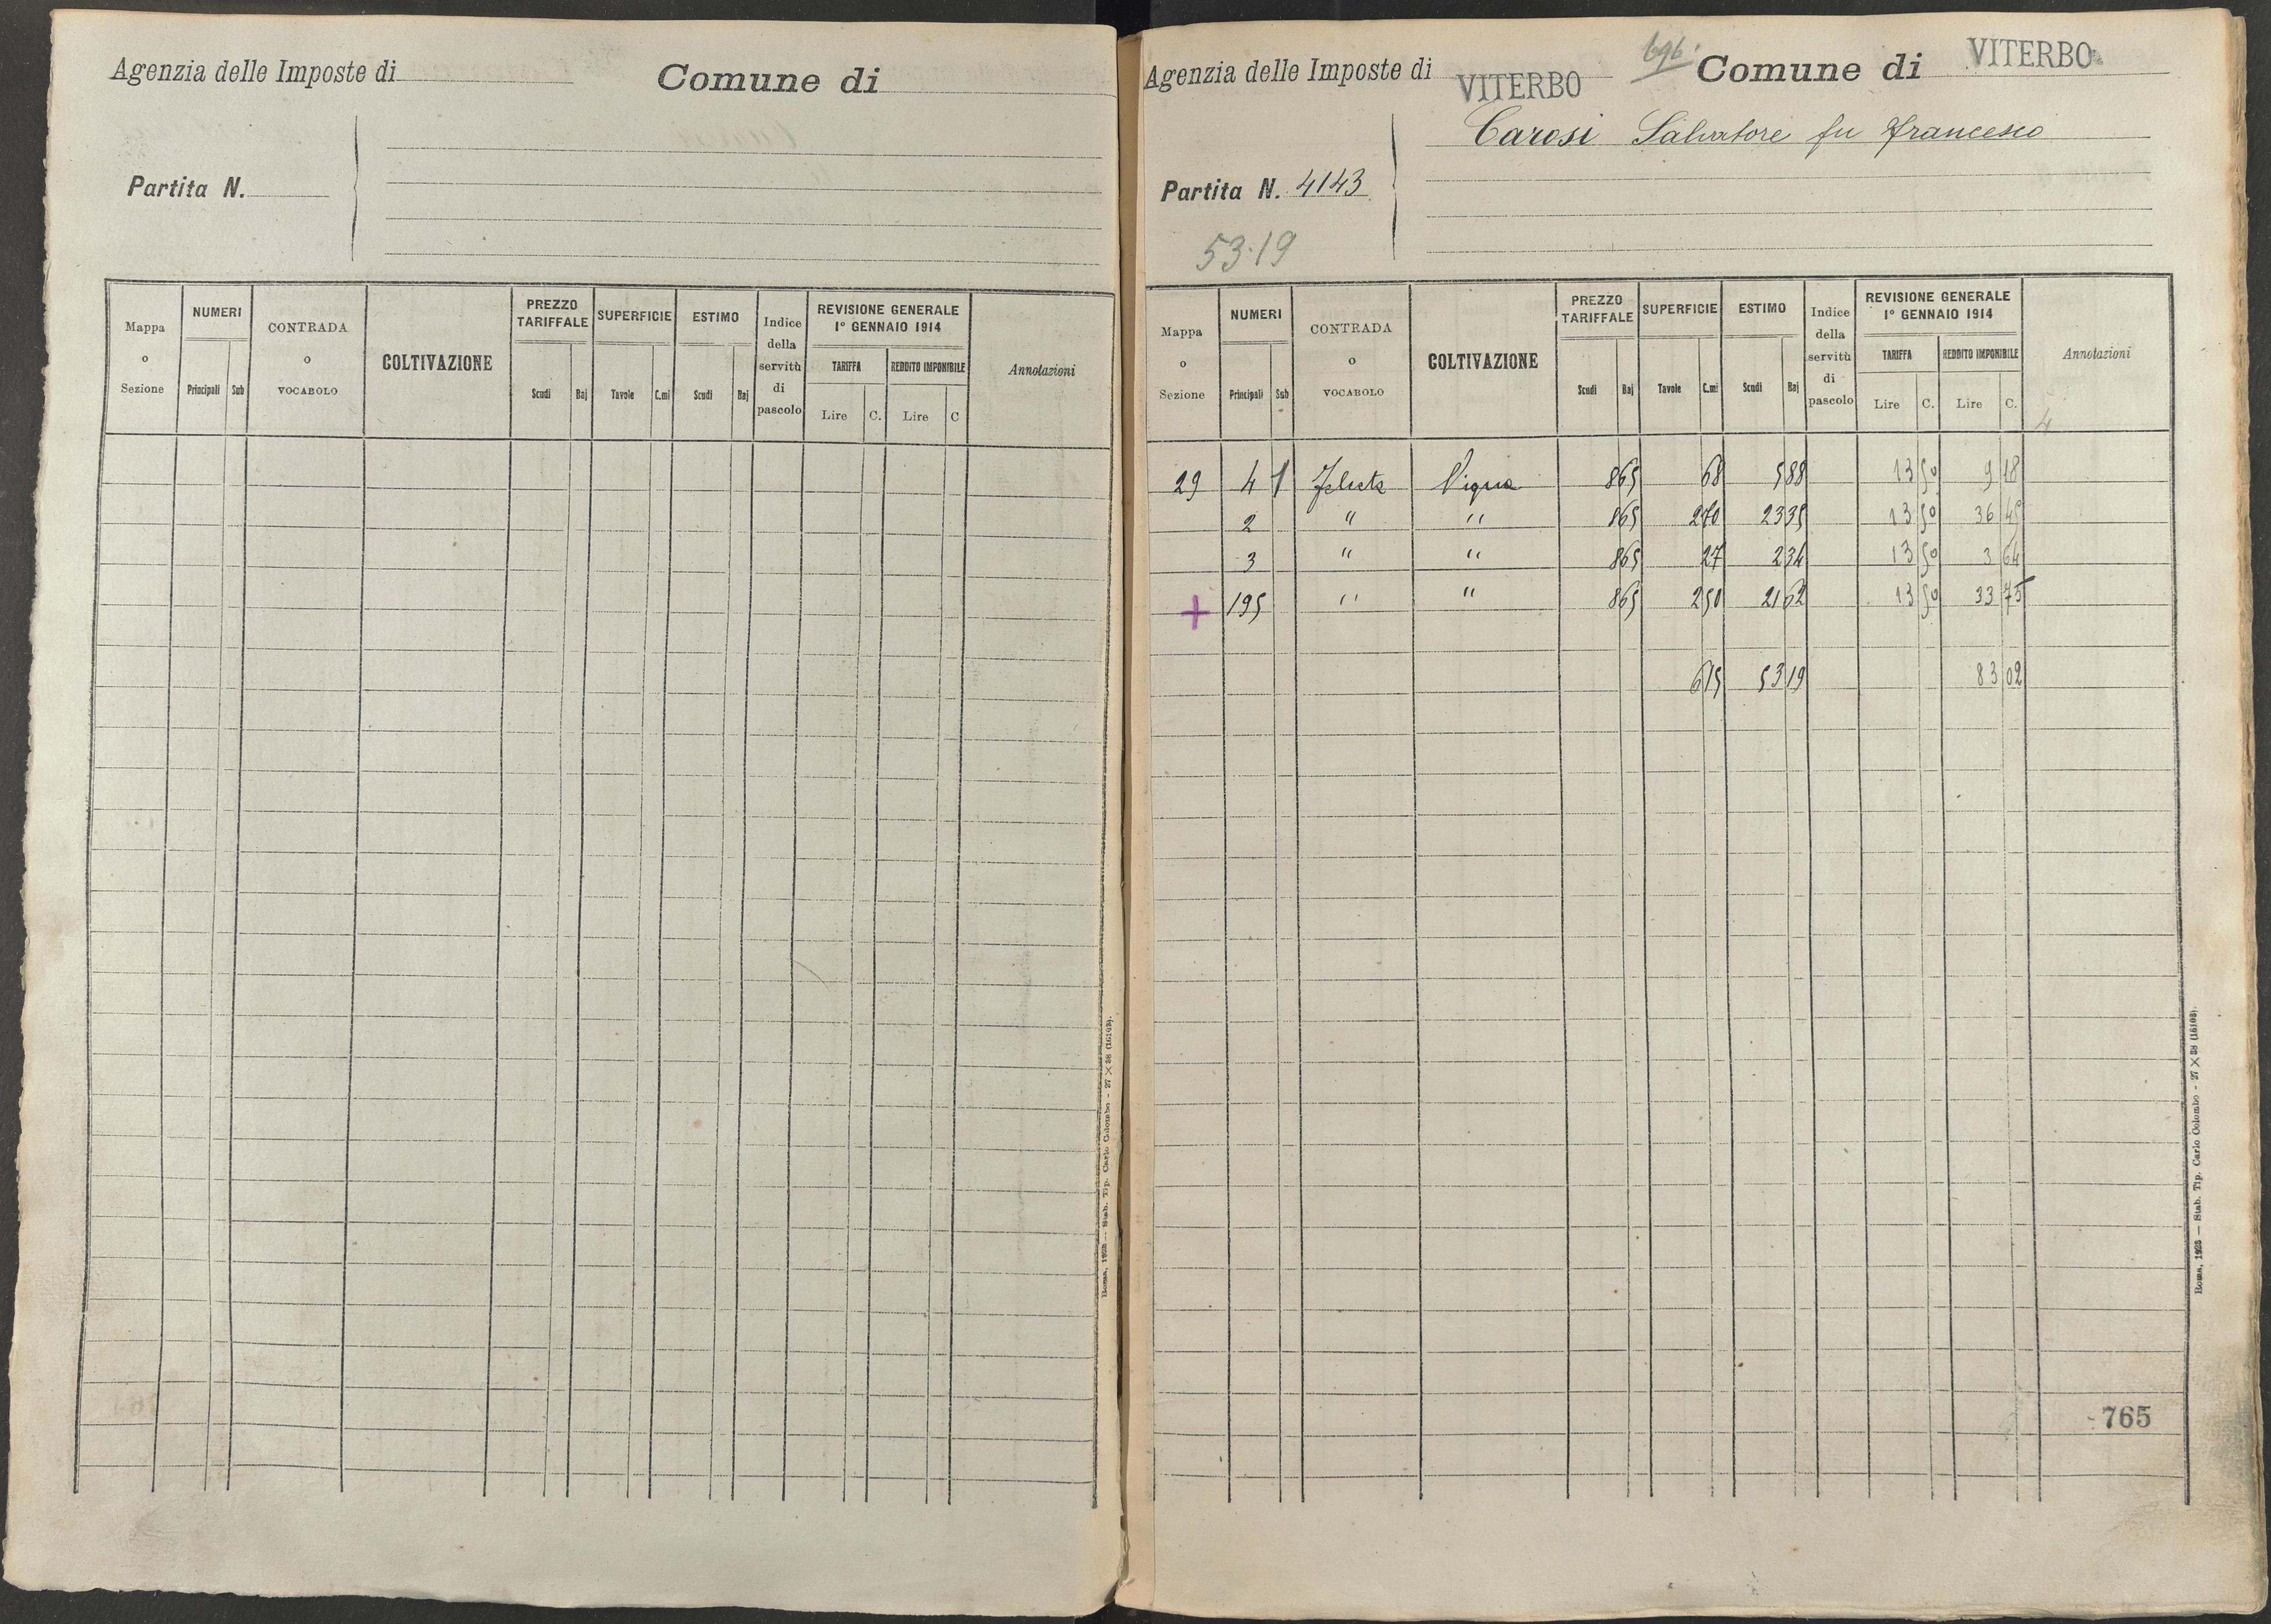 Agenzia delle Imposte di Comune di
Partita N.
Mappa o Sezione NUMERI Principali Sub CONTRADA o VOCABOLO COLTIVAZIONE PREZZO TARIFFALE Scudi Baj SUPERFICIE Tavole C.mi ESTIMO Scudi Baj Indice della servitù di pascolo REVISIONE GENERALE 1º GENNAIO 1914 TARIFFA Lire C. REDDITO IMPONIBILE Lire C Annotazioni
Roma, 1925 — Stab. Tip. Carlo Colombo - 27 × 38 (16103).
Agenzia delle Imposte di VITERBO Comune di VITERBO
Carosi Salvatore fu Francesco
Partita N. 4143
53.19
Mappa o Sezione NUMERI Principali Sub CONTRADA o VOCABOLO COLTIVAZIONE PREZZO TARIFFALE Scudi Baj SUPERFICIE Tavole C.mi ESTIMO Scudi Baj Indice della servitù di pascolo REVISIONE GENERALE 1º GENNAIO 1914 TARIFFA Lire C. REDDITO IMPONIBILE Lire C. Annotazioni
4
29 4 1 Vigna 8 65 68 5 88 13 50 9 18
2 " " 8 65 2 70 23 35 13 50 36 45
3 " " 8 65 27 2 34 13 50 3 64
+ 195 " " 8 65 2 50 21 62 13 50 33 75
6 15 53 19 83 02
765
Roma, 1925 — Stab. Tip. Carlo Colombo - 27 × 38 (16103).